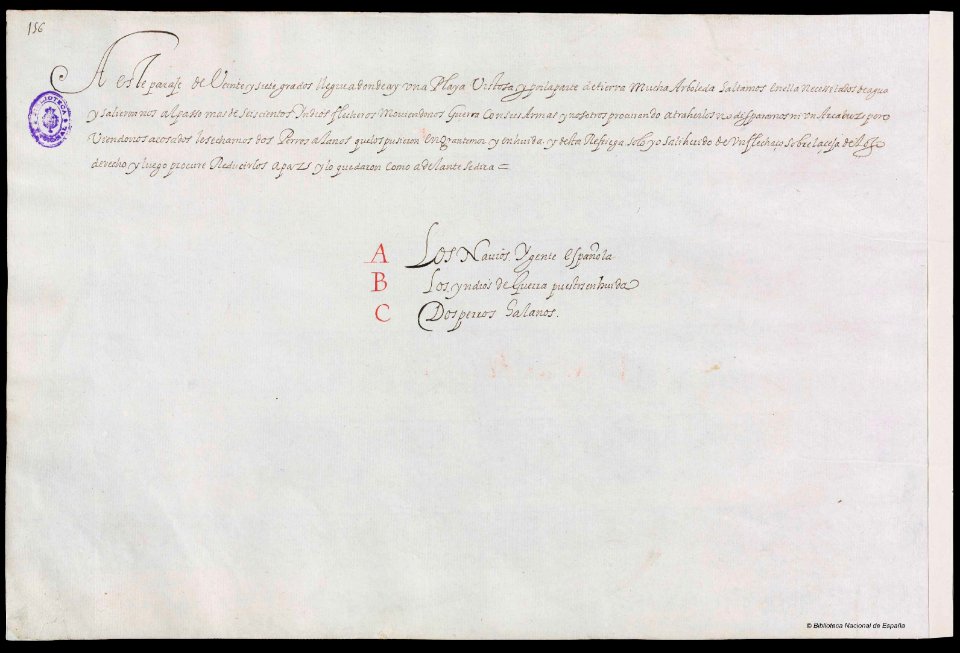 156
A este paraje de Veinte y siete grados llegue adonde ay una Playa Vistosa, y por la parte de tierra Mucha Arboleda Saltamos en ella Necessitados de agua
y salieronnos al passo mas de seiscientos Indios flecheros Moviendonos Guerra Con sus Armas y nosotros procurando atraherlos no disparamos ni un Arcabuz pero
Viendonos acosados les echamos dos Perros alanos que los pusieron En gran temor y en huida. y de la Refriega solo yo Sali herido de Un flechaço sobre la ceja del ojo
derecho y luego procure Reducirlos a paz y lo quedaron Como adelante se dira =
A Los Navios. Y gente española
B Los yndios de Guerra puestos en huida
C Dos perros Galanos.
BIBLIOTECA NACIONAL
© Biblioteca Nacional de España